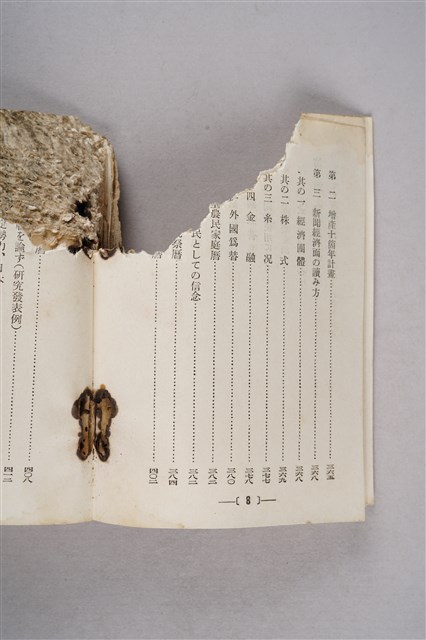 第二 增產十箇年計畫……三六五
第三 新聞經濟面の讀み方……三六八
其の一 經濟團體……三六八
其の二 株式……三六九
其の三 糸 況……三七七
四 金融……三七八
外國爲替……三八〇
農民家庭曆……三八二
民としての信念……三八二
祭曆……三八四
曆……四〇二
を論ず(研究發表例)……四〇八
四一二
—〔 8 〕—